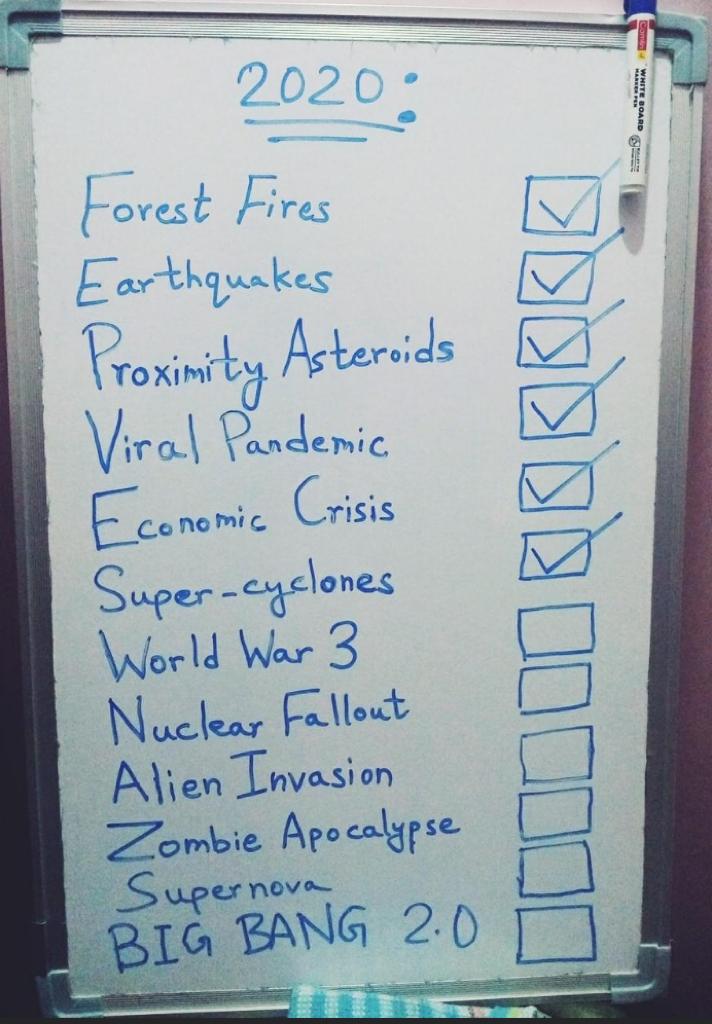 2020:
Forest Fires
Earthquakes
Proximity Asteroids
Viral Pandemic
Economic Crisis
Super-cyclones
World War 3
Nuclear Fallout
Alien Invasion
Zombie Apocalypse
Supernova
BIG BANG 2.0
WHITE BOARD
MARKER PEN